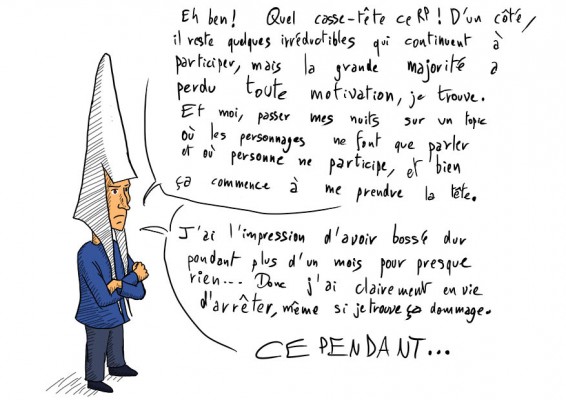 Eh ben! Quel casse-tête ce RP! D'un côté,
il reste quelques irréductibles qui continuent à
participer, mais la grande majorité a
perdu toute motivation, je trouve.
Et moi, passer mes nuits sur un topic
où les personnages ne font que parler
et où personne ne participe, et bien
ça commence à me prendre la tête.
J'ai l'impression d'avoir bossé dur
pendant plus d'un mois pour presque
rien... Donc j'ai clairement envie
d'arrêter, même si je trouve ça dommage.
CEPENDANT...